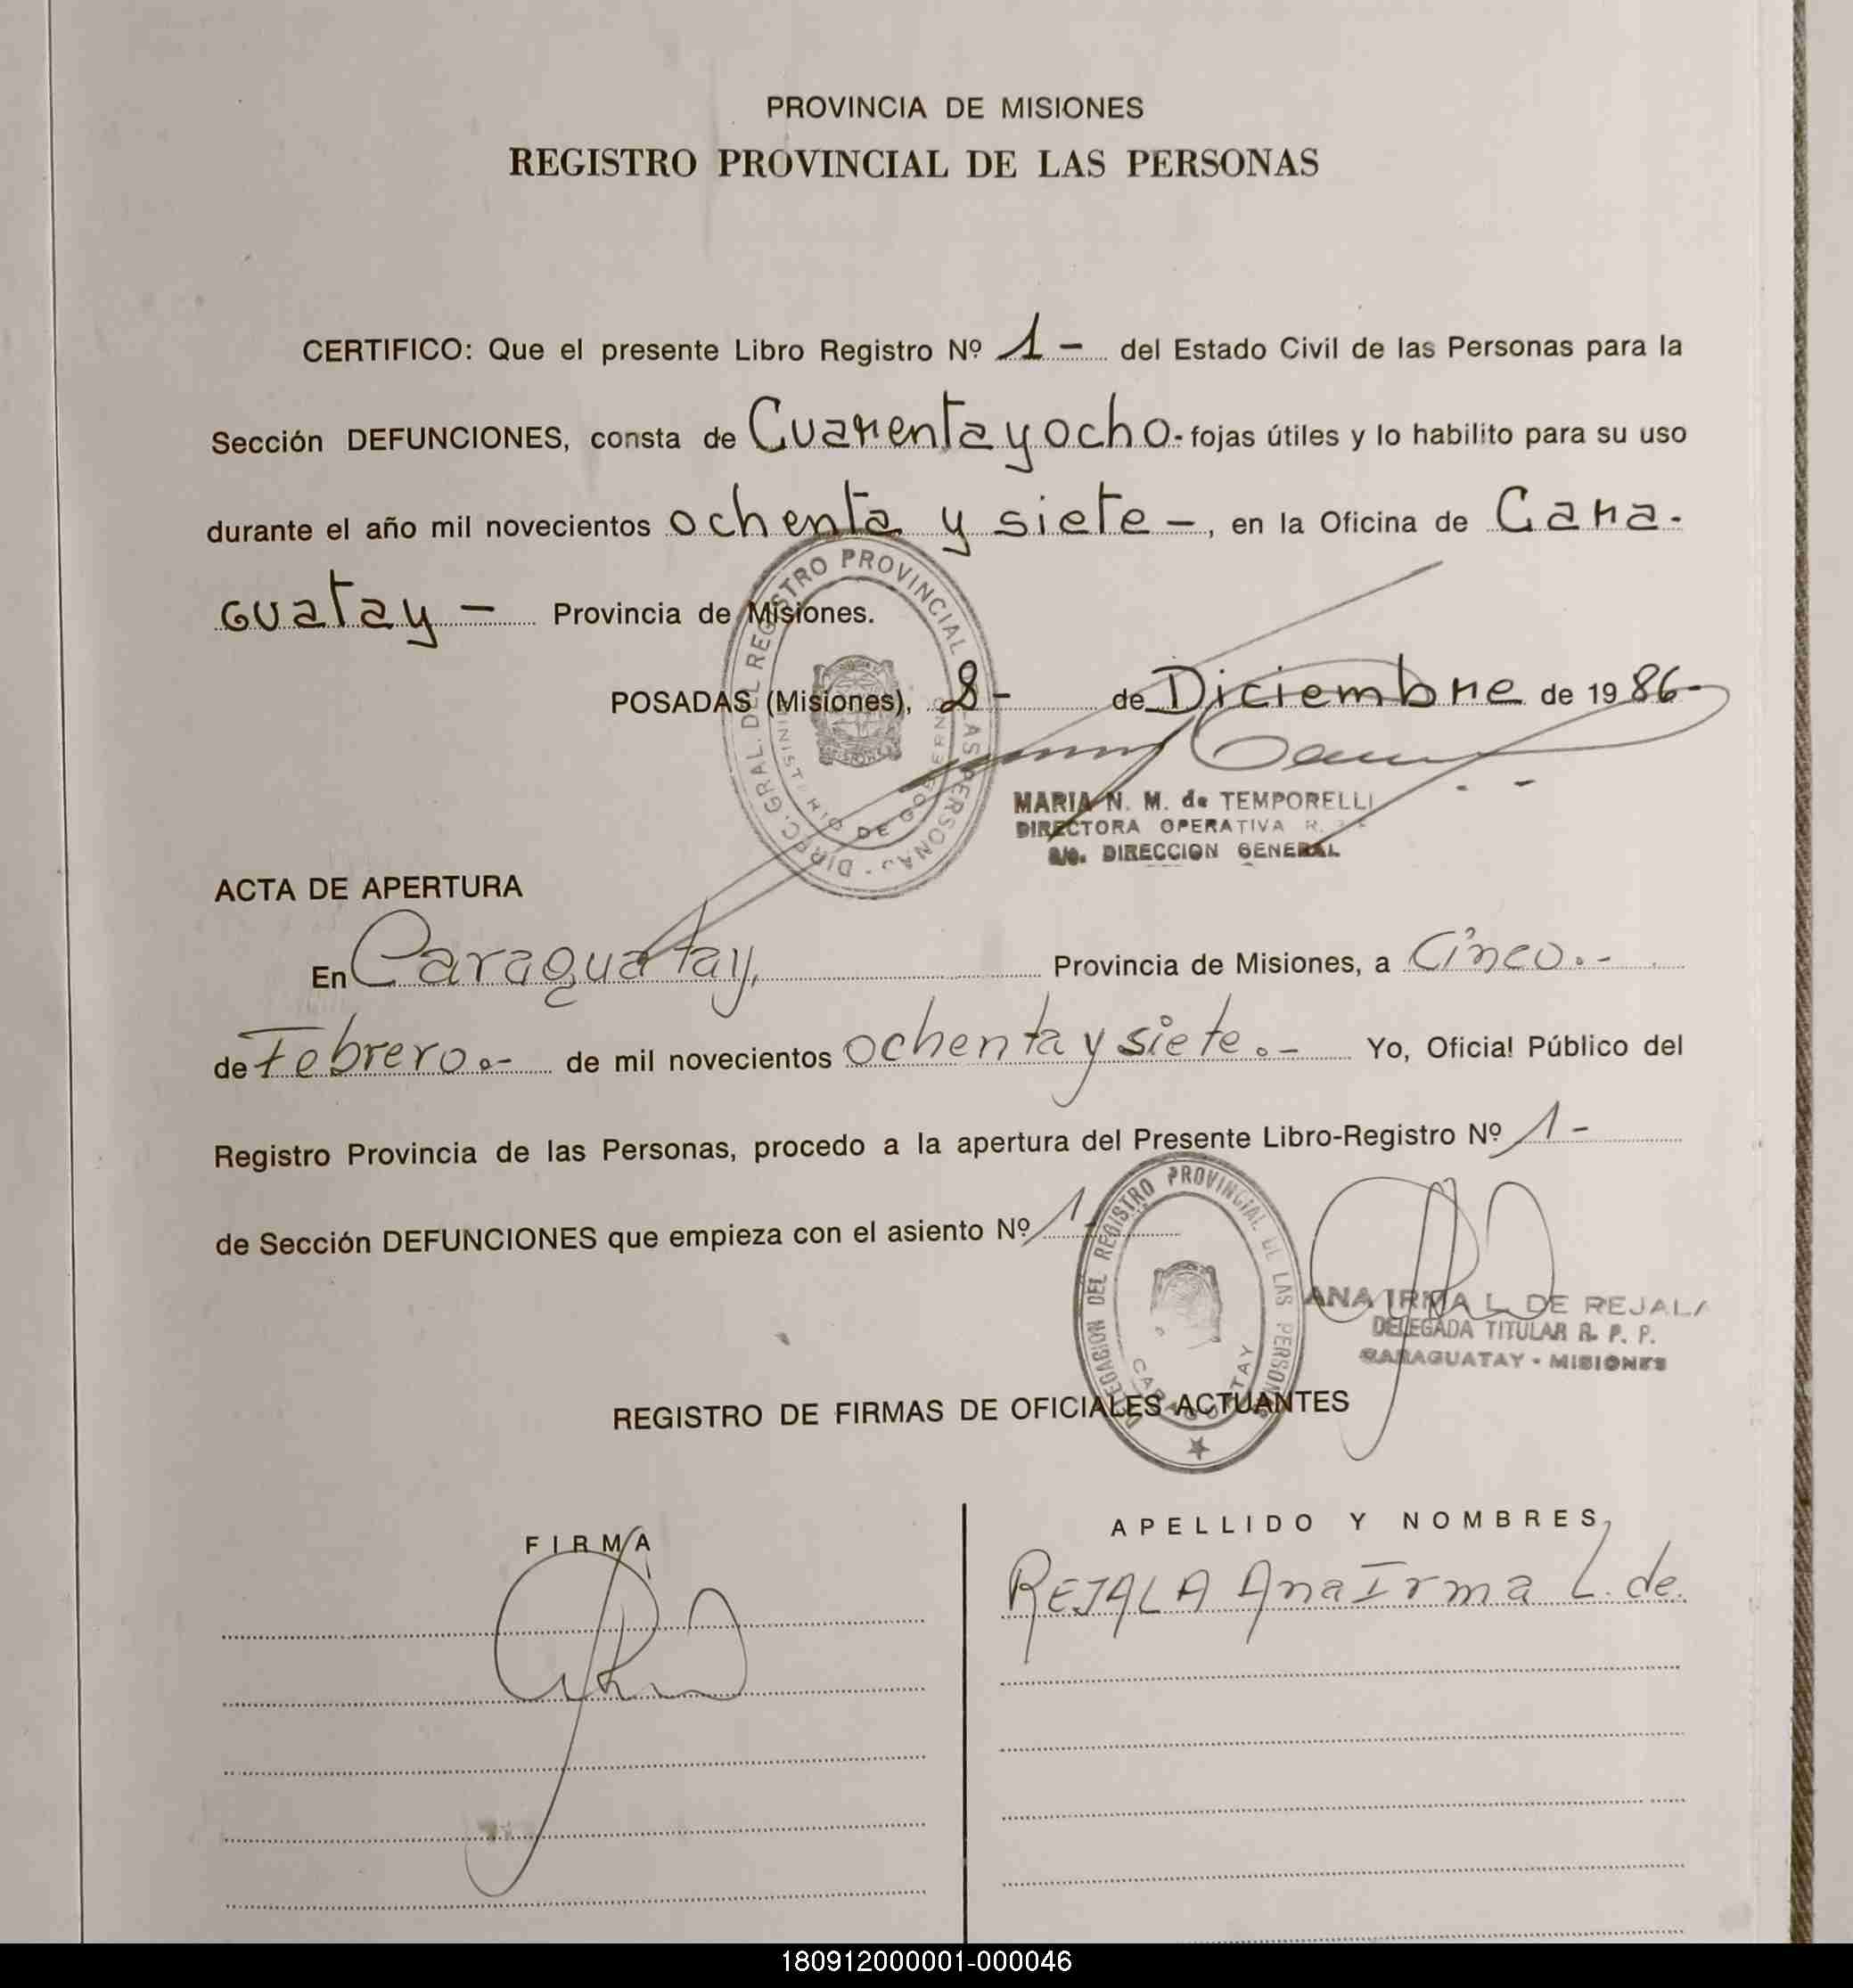 PROVINCIA DE MISIONES
REGISTRO PROVINCIAL DE LAS PERSONAS
CERTIFICO: Que el presente Libro Registro Nº 1 - del Estado Civil de las Personas para la
Sección DEFUNCIONES, consta de Cuarenta y ocho - fojas útiles y lo habilito para su uso
durante el año mil novecientos ochenta y siete -, en la Oficina de Cara-
guatay - Provincia de Misiones.
POSADAS (Misiones), 8 - de Diciembre de 1986-
DIREC. GRAL. DEL REGISTRO PROVINCIAL LAS PERSONAS -
MINISTERIO DE GOBIERNO
MARIA N. M. de TEMPORELLI
DIRECTORA OPERATIVA R.
a/c. DIRECCION GENERAL
ACTA DE APERTURA
En Caraguatay, Provincia de Misiones, a Cinco.-
de Febrero.- de mil novecientos ochenta y siete.- Yo, Oficial Público del
Registro Provincia de las Personas, procedo a la apertura del Presente Libro-Registro Nº 1-
de Sección DEFUNCIONES que empieza con el asiento Nº 1-
DELEGACION DEL REGISTRO PROVINCIAL DE LAS PERSONAS
CARAGUATAY
ANA IRMA L. DE REJALA
DELEGADA TITULAR R. P. P.
CARAGUATAY - MISIONES
REGISTRO DE FIRMAS DE OFICIALES ACTUANTES
FIRMA
APELLIDO Y NOMBRES
REJALA Ana Irma L. de.
180912000001-000046